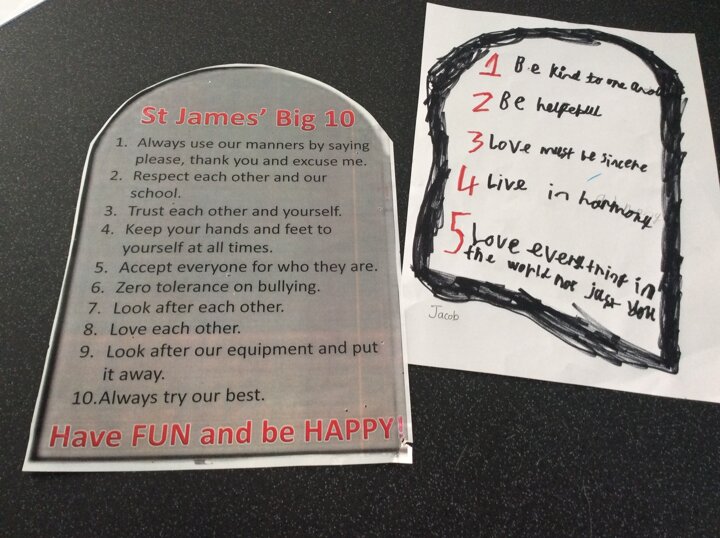 St James' Big 10
1. Always use our manners by saying
please, thank you and excuse me.
2. Respect each other and our
school.
3. Trust each other and yourself.
4. Keep your hands and feet to
yourself at all times.
5. Accept everyone for who they are.
6. Zero tolerance on bullying.
7. Look after each other.
8. Love each other.
9. Look after our equipment and put
it away.
10. Always try our best.
Have FUN and be HAPPY!
1 Be kind to one
2 Be helpefull
3 Love must be sincere
4 Live in harmony
5 Love everything in
the world not just you
Jacob